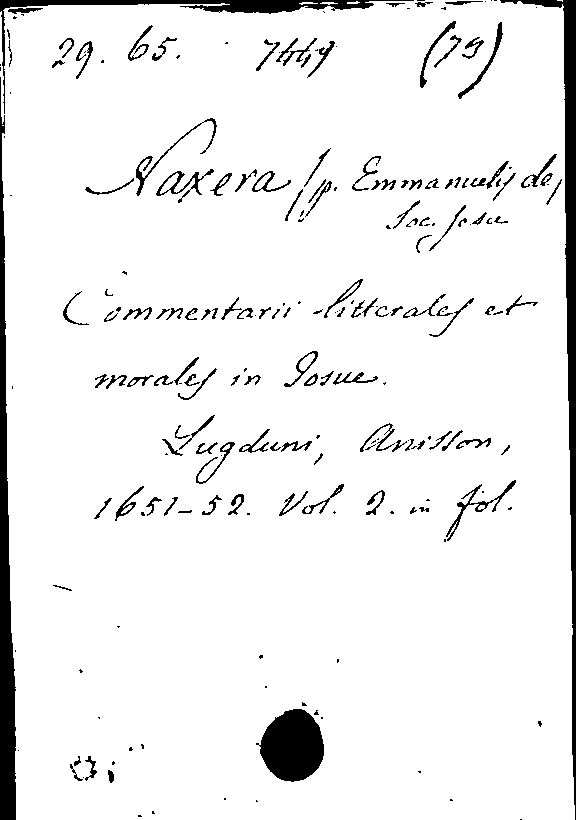 29. 65. 7449 (79)
Naxera /p. Emmanuelis de,
Soc. Jesu
Commentarii litterales et
morales in Josue.
Lugduni, Anisson,
1651-52. Vol. 2. in fol.